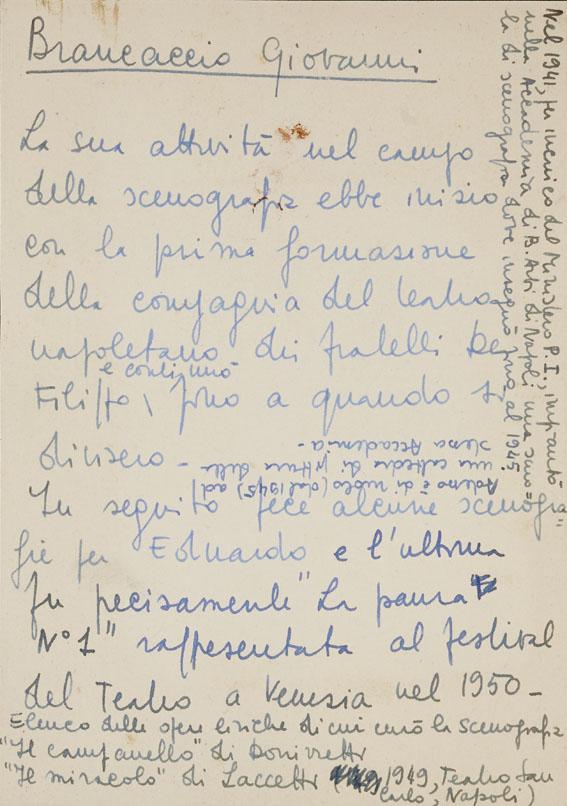 Brancaccio Giovanni
La sua attività nel campo
della scenografia ebbe inizio
con la prima formazione
della compagnia del teatro
napoletano dei fratelli De
e continuò
Filippo \ fino a quando si
divisero -
In seguito fece alcune scenogra=
fie per Eduardo e l'ultima
fu precisamente "La paura
N° 1" rappresentata al festival
del Teatro a Venezia nel 1950 -
Elenco delle opere liriche di cui curò la scenografia
"Il campanello" di Donizzetti
"Il miracolo" di Laccetti ( 1949, Teatro San
Carlo, Napoli)
Nel 1941, per incarico del Ministero P. I., impiantò
nella Accademia di B. Arti di Napoli una scuo=
la di scenografia dove insegnò fino al 1945.
Adesso è di ruolo (dal 1945) ad
una cattedra di pittura della
stessa Accademia -